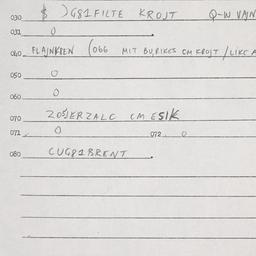 030 $ ) G81FILTE KROJT Q-W VAJN
031 0
040 FLAJNKPEN (066 MIT BURIKES CM KROJT / LIKE A
050 0
060 0
070 CM ESIK
071 0 072 0
080 CUG81BRENT